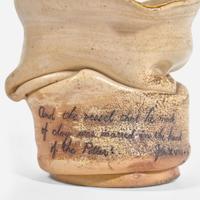 And the vessel that he made
of clay was marred in the hand
of the Potter: